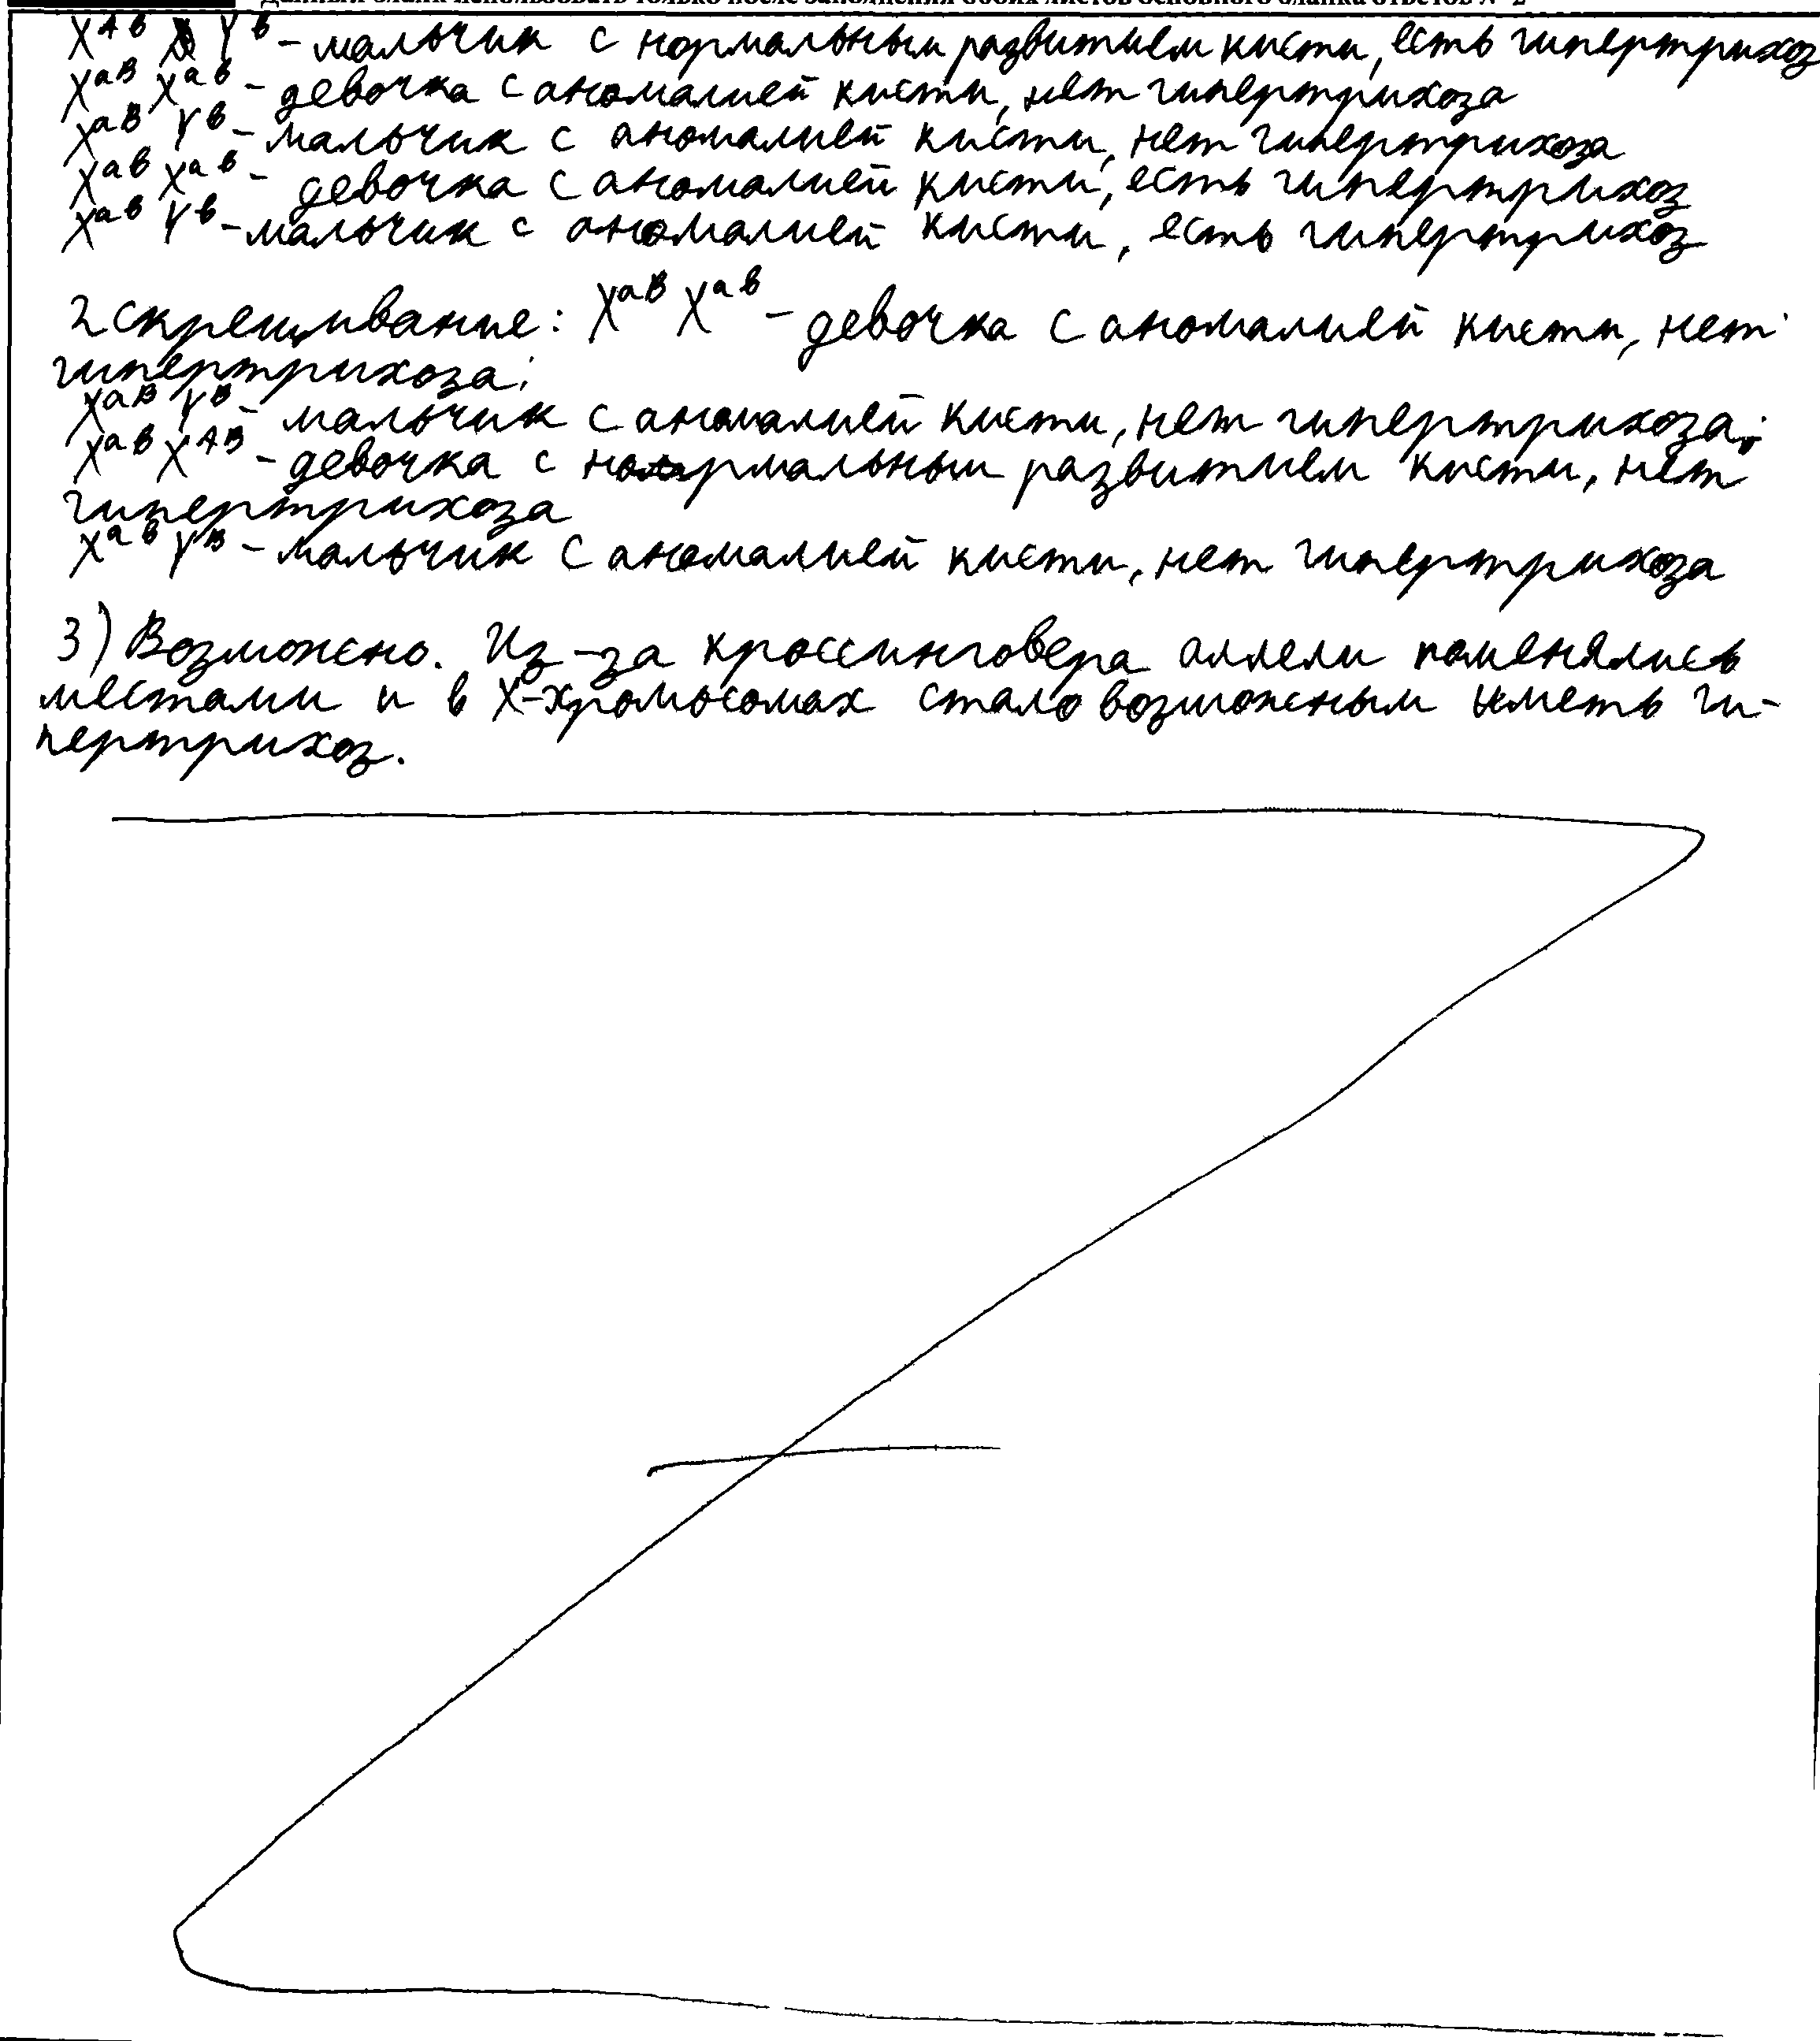 Данный бланк использовать только после заполнения обоих листов основного бланка ответов № 2
X^Ab Y^b - мальчик с нормальным развитием кисти, есть гипертрихоз
X^aB X^ab - девочка с аномалией кисти, нет гипертрихоза
X^aB Y^b - мальчик с аномалией кисти, нет гипертрихоза
X^ab X^ab - девочка с аномалией кисти, есть гипертрихоз
X^ab Y^b - мальчик с аномалией кисти, есть гипертрихоз
2 скрещивание: X^aB X^ab - девочка с аномалией кисти, нет
гипертрихоза;
X^aB Y^B - мальчик с аномалией кисти, нет гипертрихоза;
X^aB X^AB - девочка с нормальным развитием кисти, нет
гипертрихоза
X^ab Y^B - мальчик с аномалией кисти, нет гипертрихоза
3) Возможно. Из-за кроссинговера аллели поменялись
местами и в X-хромосомах стало возможным иметь ги-
пертрихоз.